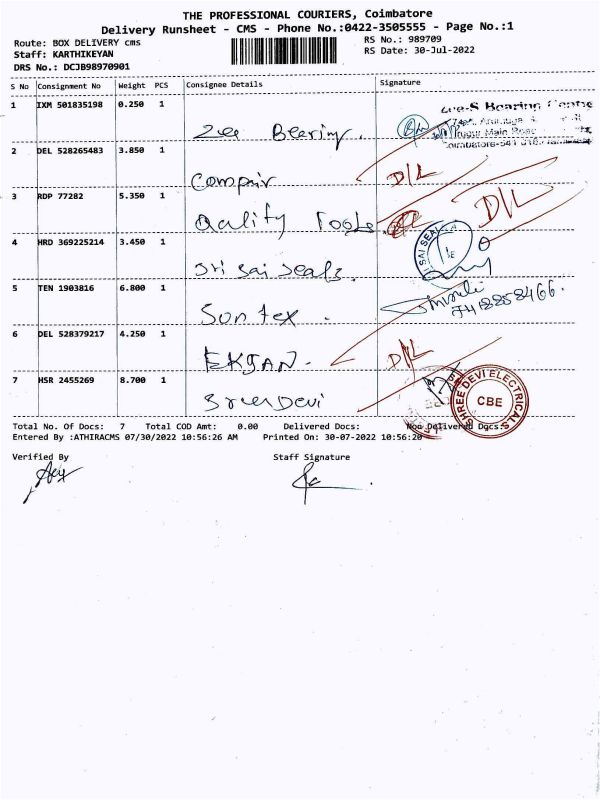 THE PROFESSIONAL COURIERS, Coimbatore
Delivery Runsheet - CMS - Phone No.:0422-3505555 - Page No.:1
Route: BOX DELIVERY cms
RS No.: 989709
Staff: KARTHIKEYAN
RS Date: 30-Jul-2022
DRS No.: DCJB98970901
S No Consignment No Weight PCS Consignee Details Signature
1 IXM 501835198 0.250 1
Zee Bearing.
Zee-S Bearing Centre
2 DEL 528265483 3.850 1
Compair D/L
3 RDP 77282 5.350 1
Quality Tools D/L
4 HRD 369225214 3.450 1
Sri Sai Seals. SAI SEAL
5 TEN 1903816 6.800 1
Suntex.
6 DEL 528379217 4.250 1
EKJAN. D/L
7 HSR 2455269 8.700 1
Sree Devi
SHREE DEVI ELECTRICALS
CBE
Total No. Of Docs: 7 Total COD Amt: 0.00 Delivered Docs: Non Delivered Docs:
Entered By :ATHIRACMS 07/30/2022 10:56:26 AM Printed On: 30-07-2022 10:56:20
Verified By Staff Signature